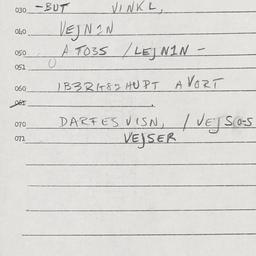 030 -BUT VINKL,
040 VEJNIN
050 A TOBS /LEJNIN -
051
060 HUPT A VORT
061
070 DARFES VISN, / VEJS
072 VEJSER